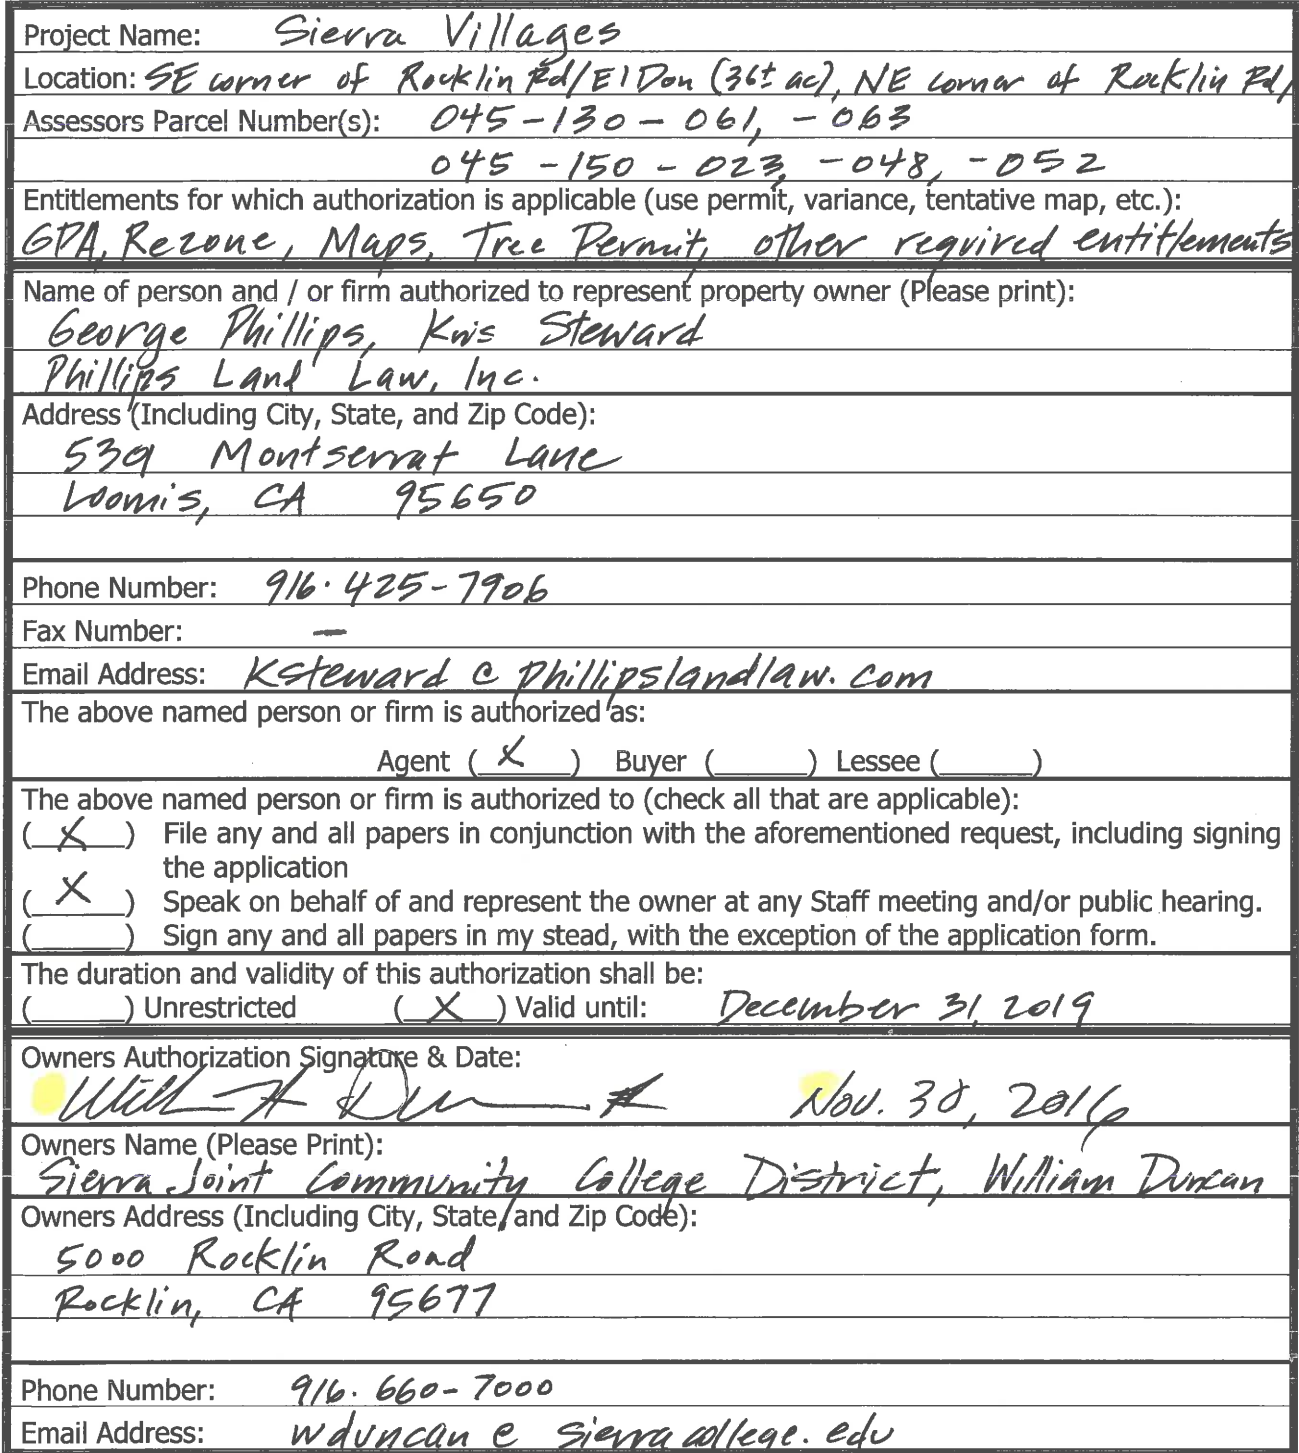 Project Name: Sierra Villages
Location: SE corner of Rocklin Rd/El Don (36± ac), NE corner of Rocklin Rd/
Assessors Parcel Number(s): 045-130-061, -063
045-150-023, -048, -052
Entitlements for which authorization is applicable (use permit, variance, tentative map, etc.):
GPA, Rezone, Maps, Tree Permit, other required entitlements
Name of person and / or firm authorized to represent property owner (Please print):
George Phillips, Kris Steward
Phillips Land Law, Inc.
Address (Including City, State, and Zip Code):
5301 Montserrat Lane
Loomis, CA 95650
Phone Number: 916·425-7906
Fax Number: —
Email Address: Ksteward@phillipslandlaw.com
The above named person or firm is authorized as:
Agent ( X ) Buyer ( ) Lessee ( )
The above named person or firm is authorized to (check all that are applicable):
( X ) File any and all papers in conjunction with the aforementioned request, including signing
the application
( X ) Speak on behalf of and represent the owner at any Staff meeting and/or public hearing.
( ) Sign any and all papers in my stead, with the exception of the application form.
The duration and validity of this authorization shall be:
( ) Unrestricted ( X ) Valid until: December 31, 2019
Owners Authorization Signature & Date:
Nov. 30, 2016
Owners Name (Please Print):
Sierra Joint Community College District, William Duncan
Owners Address (Including City, State, and Zip Code):
5000 Rocklin Road
Rocklin, CA 95677
Phone Number: 916·660-7000
Email Address: wduncan@sierracollege.edu